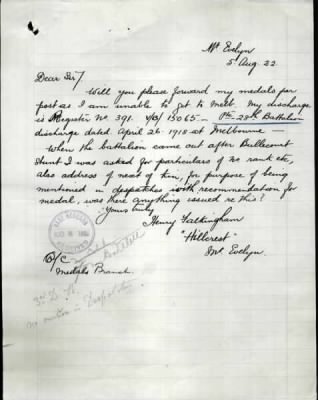 Mt Evelyn
5 Aug. 22.
Dear Sir/
Will you please forward my medals per
post as I am unable to get to Melb. My discharge
is Register No. 391. 15065 – Pte. 28th Battalion
discharge dated April 26. 1918 at Melbourne –
When the battalion came out after Bullecourt
stunt I was asked for particulars of no rank etc,
also address of next of kin, for purpose of being
mentioned in despatches with recommendation for
medal, was there anything issued re this?
Yours truly
Henry
"Hillcrest"
Mt. Evelyn.
O/C
Medals Branch.
no mention in Despatches